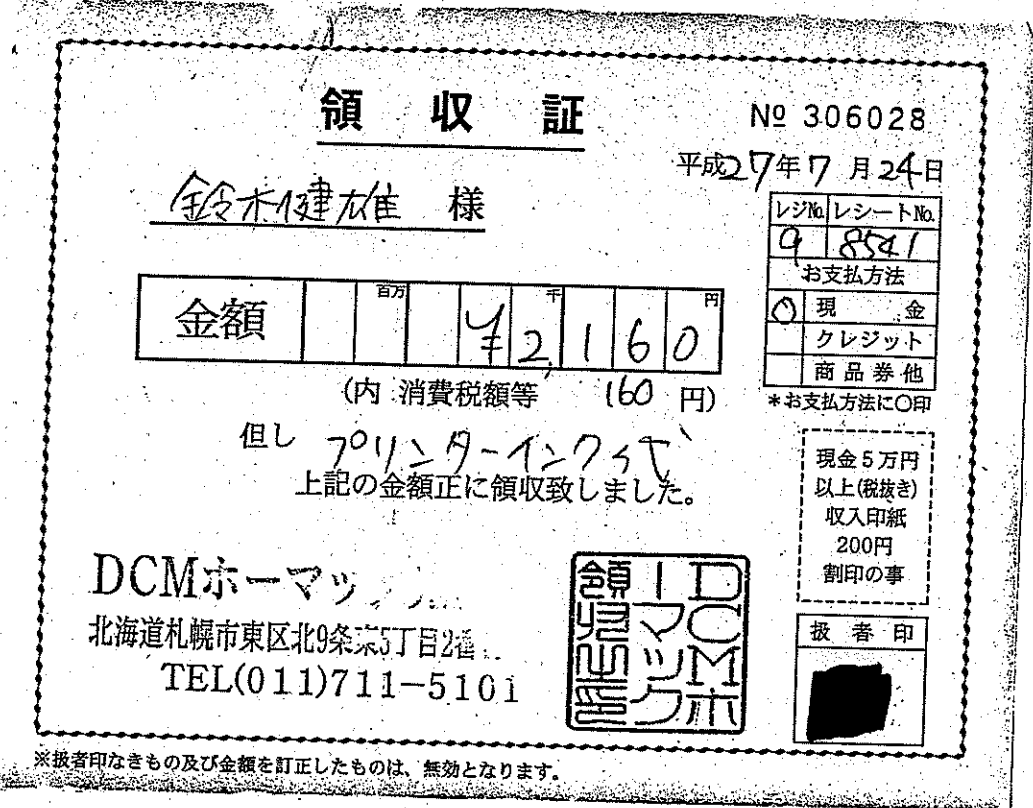 領収証
№ 306028
平成27年7月24日
鈴木健雄 様
レジNo. レシートNo.
9 8541
お支払方法
〇 現金
クレジット
商品券他
*お支払方法に〇印
金額 百万 千 円
¥2,160
(内 消費税額等 160 円)
但し プリンターインク代
上記の金額正に領収致しました。
現金5万円
以上(税抜き)
収入印紙
200円
割印の事
DCMホーマッ
北海道札幌市東区北9条東5丁目2番
TEL(011)711-5101
DCMホ
ーマック
領収之印
扱者印
※扱者印なきもの及び金額を訂正したものは、無効となります。